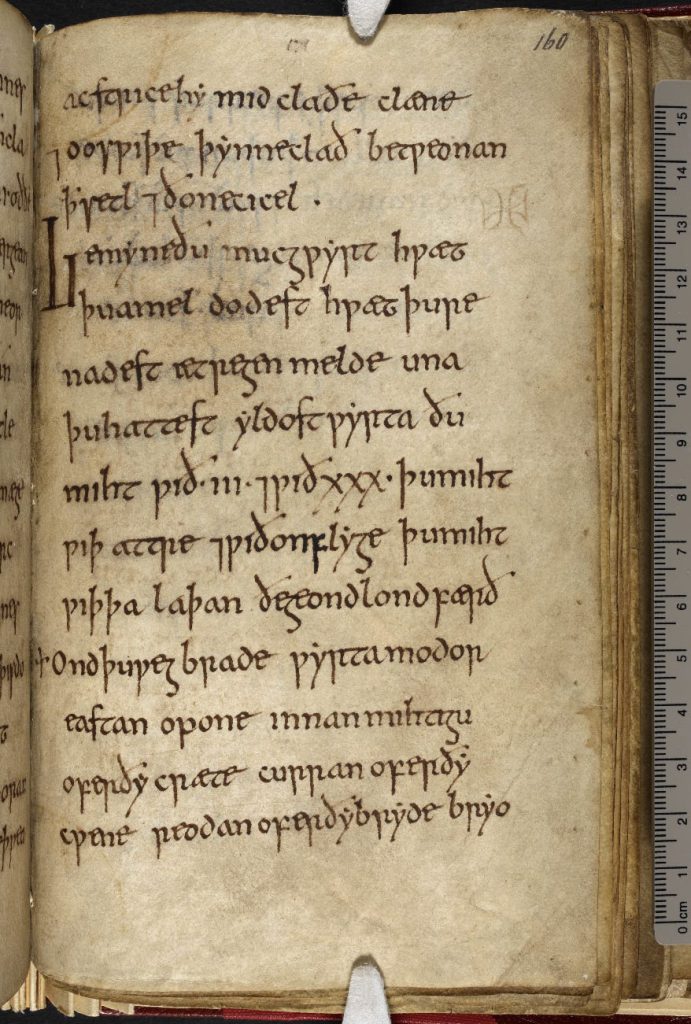 160
ac strice hy mid claðe clæne
betƿeonan
Gemyne ðu mucgƿyrt hƿæt
þu amel dodest hƿæt þu re
nadest æt regen melde una
þu hattest yldost ƿyrta ðu
miht ƿið · iii · ⁊ ƿið xxx · þu miht
ƿiþ attre ⁊ ƿið onflyge þu miht
ƿiþ þa laþan ðe geond lond færð
+ Ond þu ƿegbrade ƿyrta modor
eastan opone innan mihtigu
ofer ðy cræte curran ofer ðy
cƿene reodan ofer ðy bryde bryo